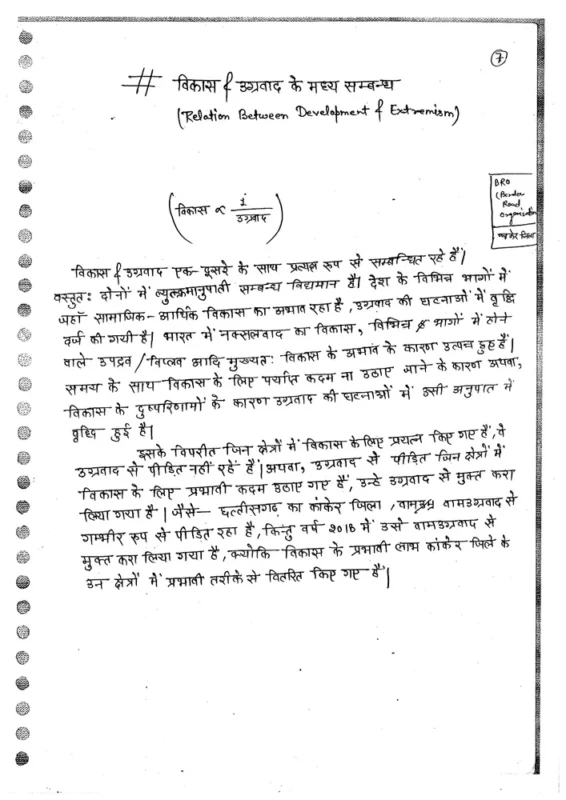 7
# विकास & उग्रवाद के मध्य सम्बन्ध
(Relation Between Development & Extremism)
BRO
(Border
Road
Organisation
(विकास ∝ 1/उग्रवाद)
विकास & उग्रवाद एक-दूसरे के साथ प्रत्यक्ष रूप से सम्बन्धित रहे हैं।
वस्तुत: दोनों में व्युत्क्रमानुपाती सम्बन्ध विद्यमान है। देश के विभिन्न भागों में
जहाँ सामाजिक-आर्थिक विकास का अभाव रहा है, उग्रवाद की घटनाओं में वृद्धि
दर्ज की गयी है। भारत में नक्सलवाद का विकास, विभिन्न भागों में होने
वाले उपद्रव/विप्लव आदि मुख्यत: विकास के अभाव के कारण उत्पन्न हुए हैं।
समय के साथ विकास के लिए पर्याप्त कदम ना उठाए जाने के कारण अथवा,
विकास के दुष्परिणामों के कारण उग्रवाद की घटनाओं में उसी अनुपात में
वृद्धि हुई है।
इसके विपरीत जिन क्षेत्रों में विकास के लिए प्रयत्न किए गए हैं, वे
उग्रवाद से पीड़ित नहीं रहे हैं। अथवा, उग्रवाद से पीड़ित जिन क्षेत्रों में
विकास के लिए प्रभावी कदम उठाए गए हैं, उन्हे उग्रवाद से मुक्त करा
लिया गया है। जैसे- छत्तीसगढ़ का कांकेर जिला, वामउग्रवाद से
गम्भीर रूप से पीड़ित रहा है, किन्तु वर्ष 2018 में उसे वामउग्रवाद से
मुक्त करा लिया गया है, क्योकि विकास के प्रभावी लाभ कांकेर जिले के
उन क्षेत्रों में प्रभावी तरीके से वितरित किए गए हैं।